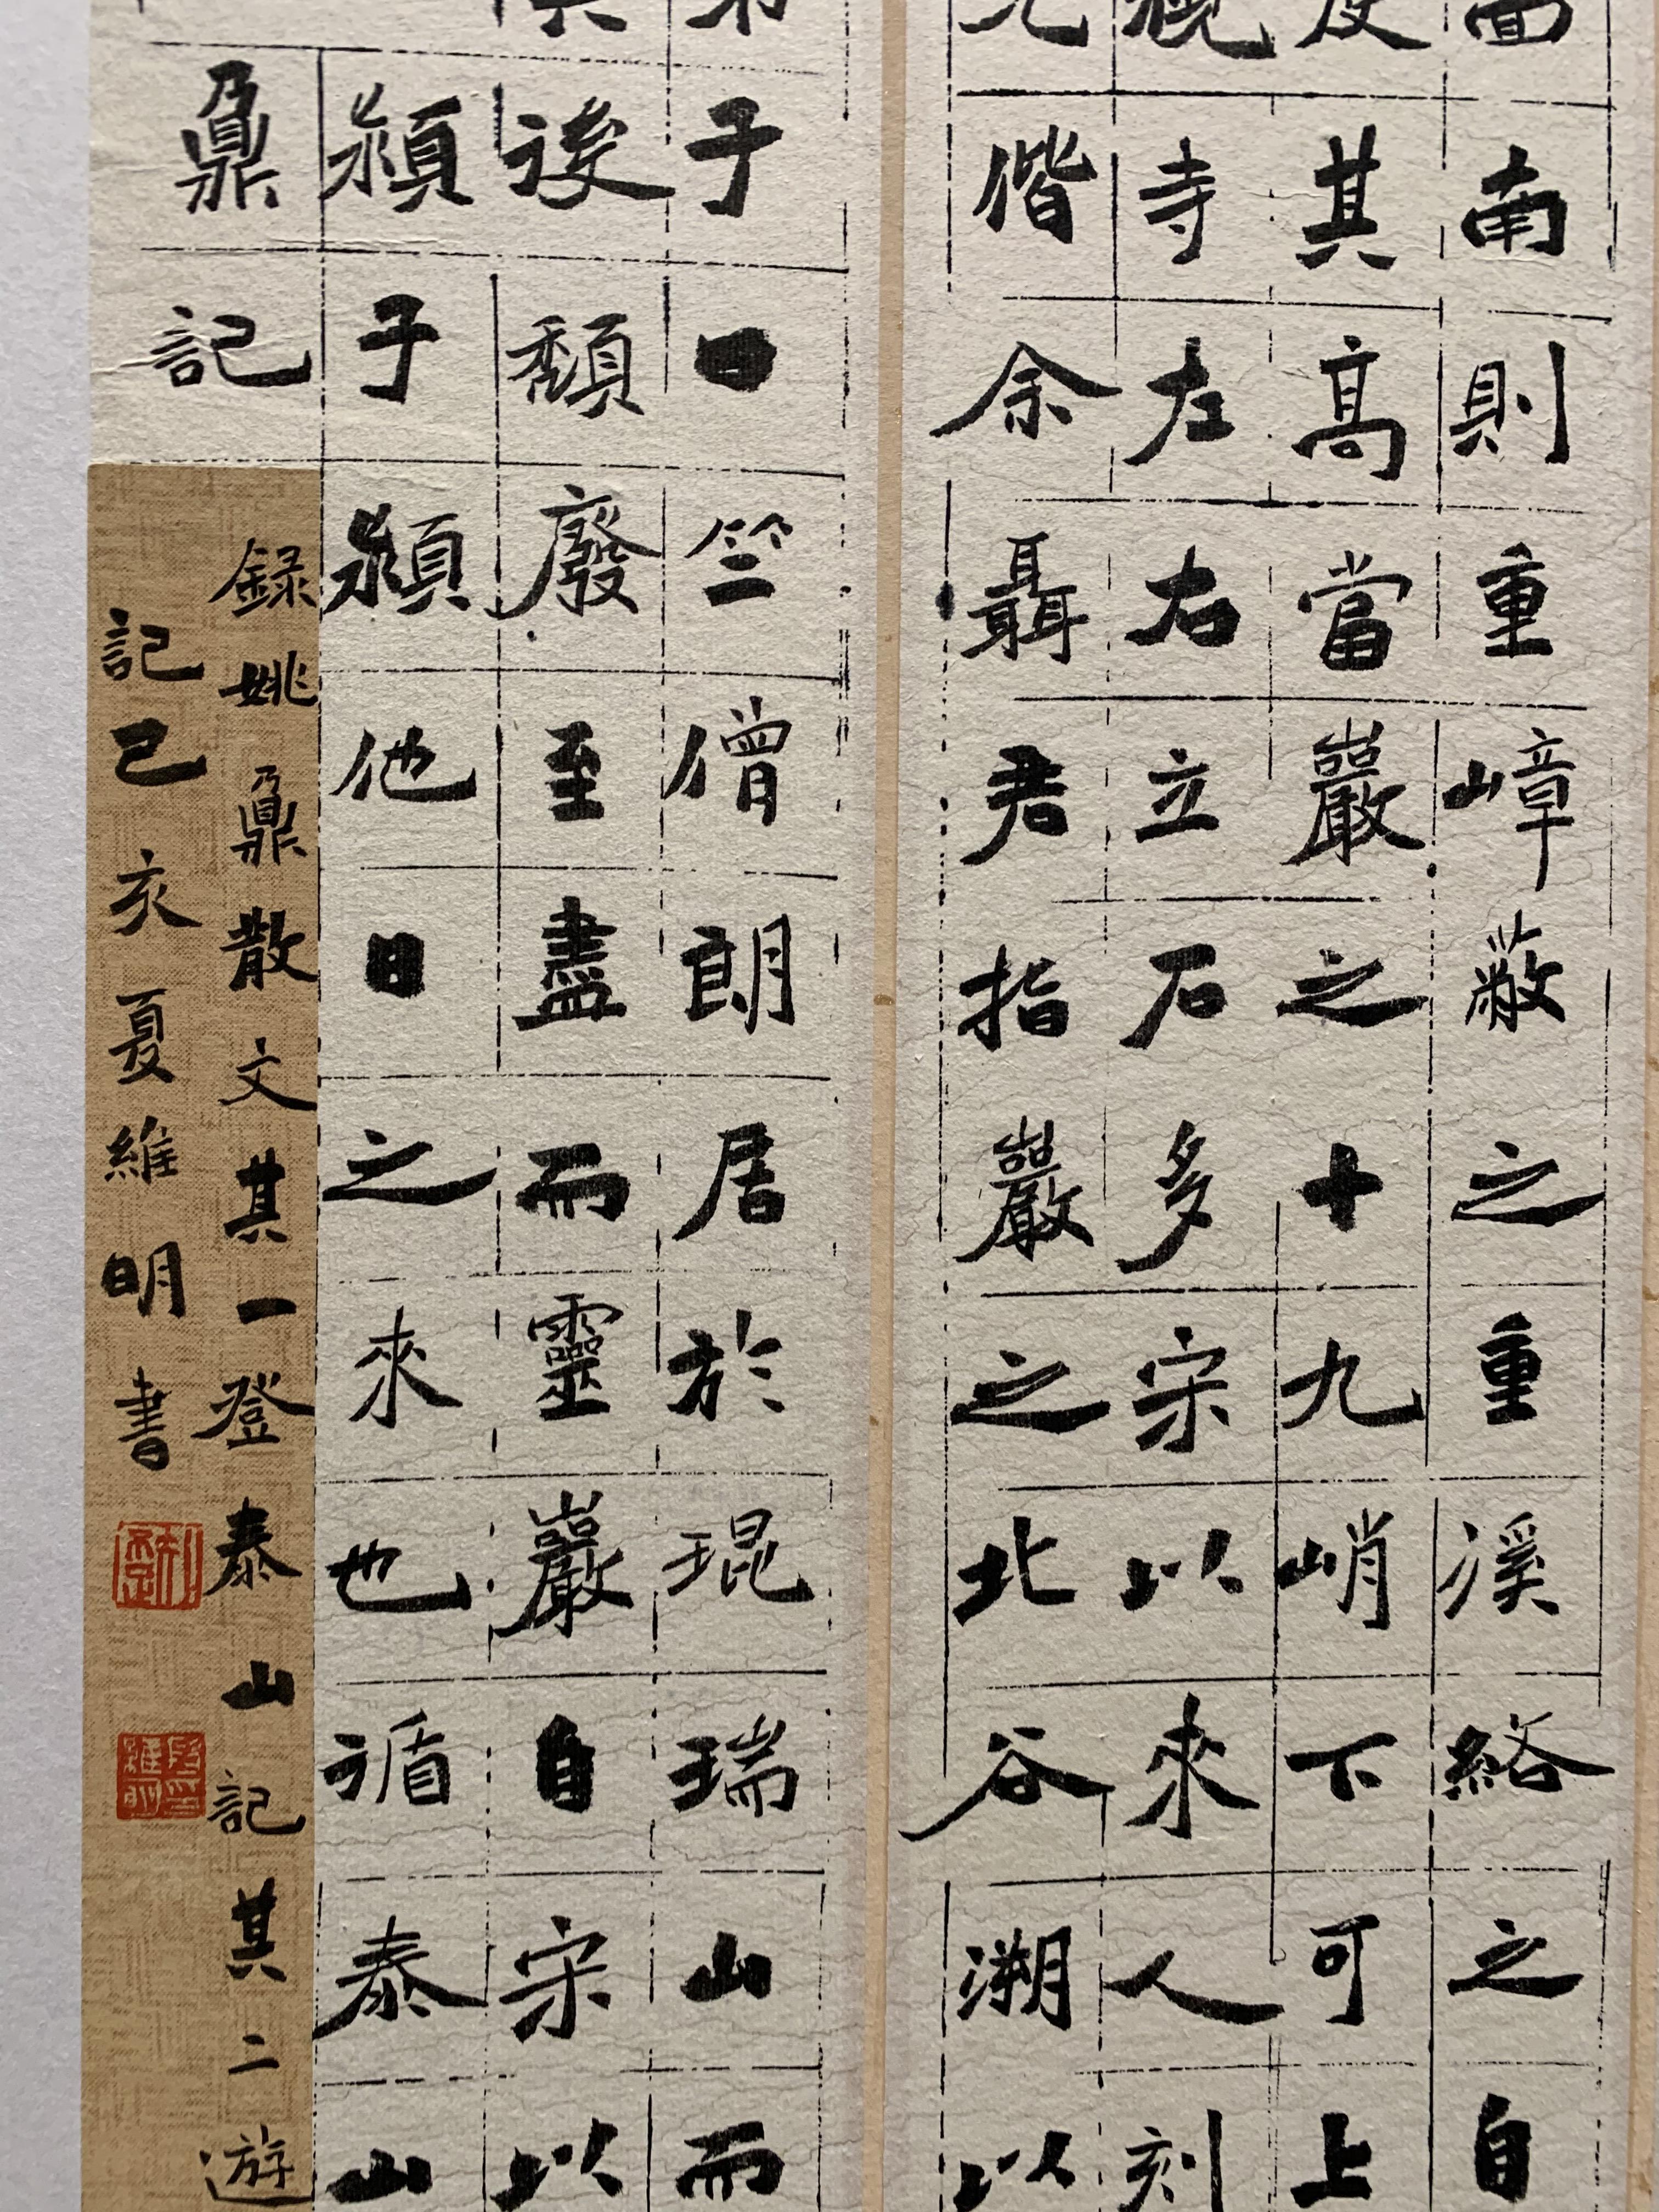 面南則重嶂蔽之重溪絡之自
度其高當巖之十九峭不可上
視寺左右立石多宋以來人刻
光偕余聶君指巖之北谷溯以
弟子曰竺僧朗居於琨瑞山而
其後頹廢至盡而靈巖自宋以
潁子潁他日之來也循泰山
鼐記
録姚鼐散文其一登泰山記其二遊
記己亥夏維明書